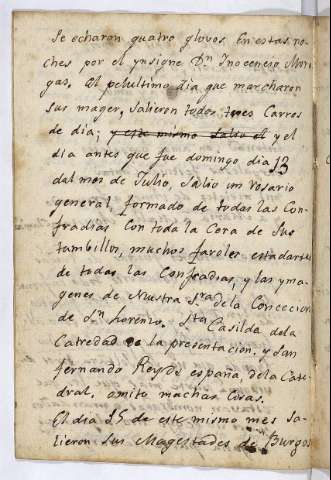 Se echaron quatro glovos. En estas no-
ches por el ynsigne Dn. Inocencio Mon
gas, El penultimo dia que marcharon
sus mager, salieron todos tres Carros
de dia; y este mismo salio el y el
dia antes que fue domingo dia 13
dal mes de Julio, Salio un rosario
general formado de todas las Con-
fradias Con toda la Cera de Sus
tambillos, muchos faroles estandartes
de todas las Confradias, y las yma-
genes de Nuestra Sra. de la Concecion
de Sn. Lorenzo. Sta. Casilda dela
Catredal de la presentacion, y San
fernando Rey de españa, dela Cate-
dral. amito machas Cosas.
El dia 15 de este mismo mes Sa-
lieron Sus Magestades de Burgos